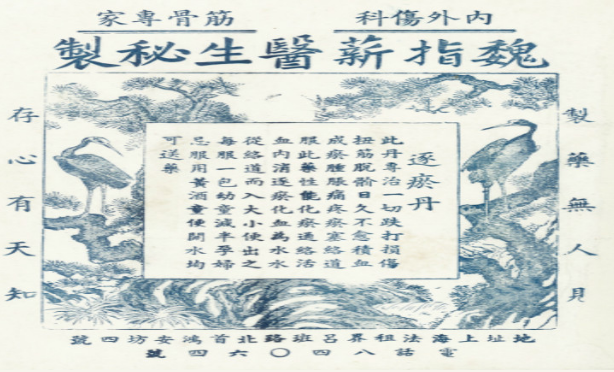 內外傷科 筋骨專家
魏指薪醫生秘製
製藥無人見
逐瘀丹
此丹專治一切跌打損傷
扭筋脫骱日久不愈積血
成瘀腫脹痛疼瘀塞道
服此藥性能化瘀通絡活
血內消逐瘀化血為水水
從絡道而入大小便出之
每服一包幼童減半孕婦
忌服用黃酒童便開水均
可送藥
存心有天知
地址上海法租界呂班路北首鴻安坊四號
電話八四〇六四號